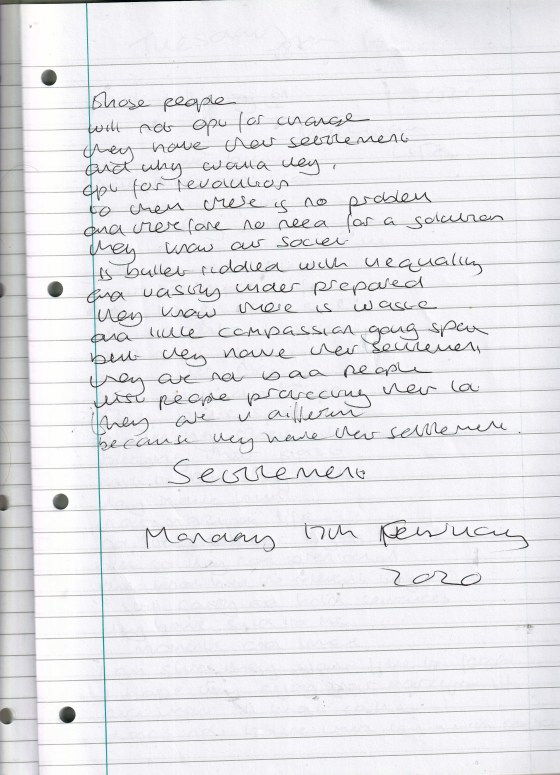 those people
will not opt for change
they have their settlement
and why would they,
opt for revolution
to them there is no problem
and therefore no need for a solution
they know our society
is bullet riddled with inequality
and vastly under prepared
they know there is waste
and little compassion going spare
but they have their settlement
they are not bad people
just people protecting their lot
they are
because they have their settlement.
Settlement
Monday 17th February
2020